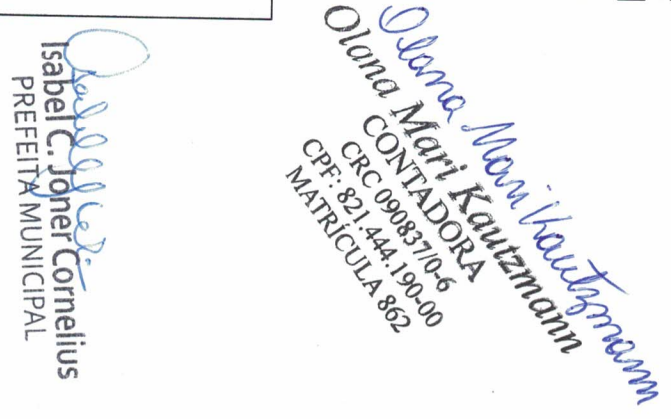 Isabel C. Joner Cornelius
PREFEITA MUNICIPAL
Olana Mari Kautzmann
Olana Mari Kautzmann
CONTADORA
CRC 090837/0-6
CPF: 821.444.190-00
MATRÍCULA 862